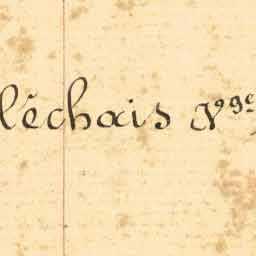 léchais Vge